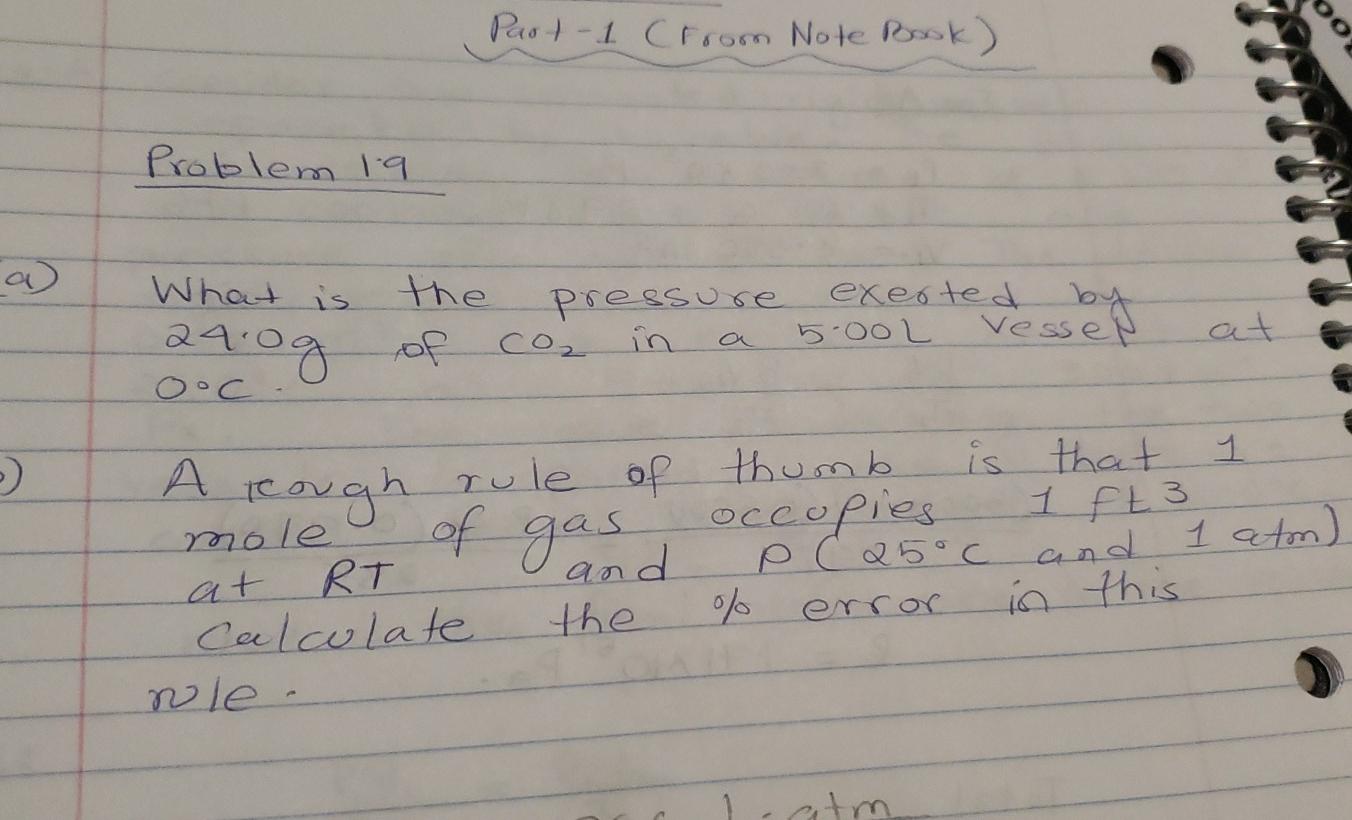 Part-1 (From Note Book)
Problem 1.9
a) What is the pressure exerted by
24.0g of CO2 in a 5.00L vessel at
0°C.
) A rough rule of thumb is that 1
mole of gas occupies 1 ft3
at RT and P (25°C and 1 atm)
Calculate the % error in this
rule.
1.atm